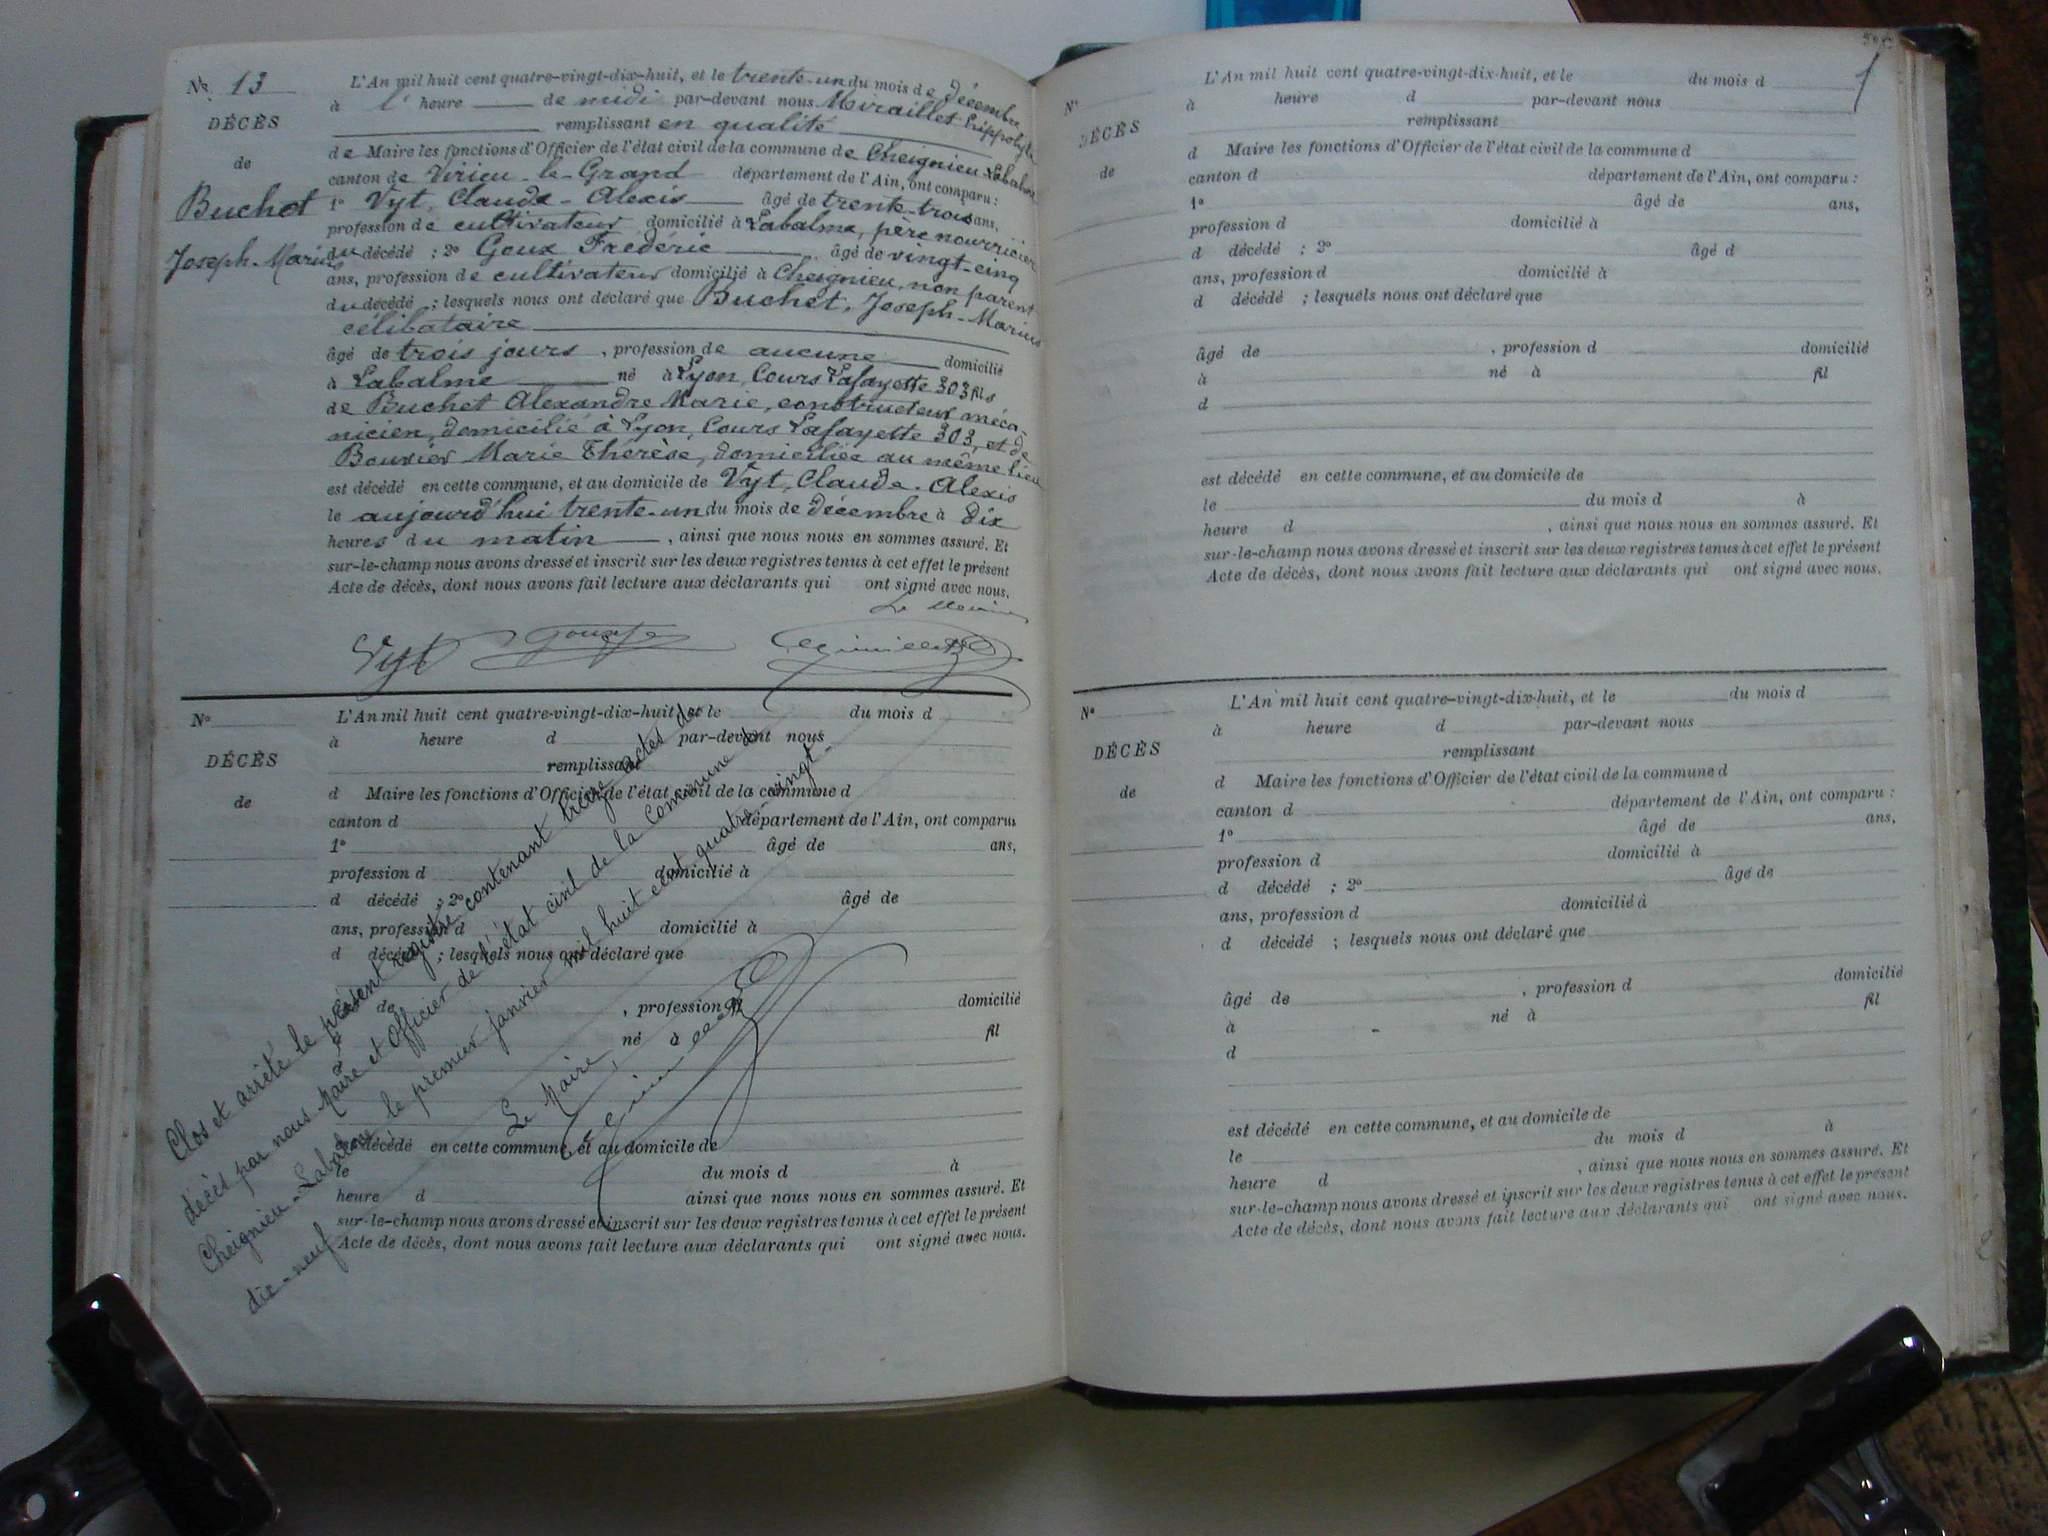 N° 13
DÉCÈS
de
Buchet
Joseph-Marius
L'An mil huit cent quatre-vingt-dix-huit, et le trente-un du mois de décembre
à l' heure de midi par-devant nous Miraillet Hippolyte
remplissant en qualité
de Maire les fonctions d'Officier de l'état civil de la commune de Cheignieu-Labalme
canton de Virieu-le-Grand département de l'Ain, ont comparu :
1° Vyt, Claude-Alexis âgé de trente-trois ans,
profession de cultivateur domicilié à Labalme, père nourricier
du décédé ; 2° Goux Frédéric âgé de vingt-cinq
ans, profession de cultivateur domicilié à Cheignieu, non parent
du décédé ; lesquels nous ont déclaré que Buchet, Joseph-Marius
célibataire
âgé de trois jours , profession de aucune domicilié
à Labalme né à Lyon, Cours Lafayette 303 fils
de Buchet Alexandre Marie, constructeur méca-
nicien, domicilié à Lyon, Cours Lafayette 303, et de
Bouvier Marie Thérèse, domiciliée au même lieu
est décédé en cette commune, et au domicile de Vyt, Claude-Alexis
le aujourd'hui trente-un du mois de décembre à dix
heures du matin , ainsi que nous nous en sommes assuré. Et
sur-le-champ nous avons dressé et inscrit sur les deux registres tenus à cet effet le présent
Acte de décès, dont nous avons fait lecture aux déclarants qui ont signé avec nous.
Le Maire
Vyt
N°
DÉCÈS
de
L'An mil huit cent quatre-vingt-dix-huit, et le du mois d
à heure d par-devant nous
remplissant
d Maire les fonctions d'Officier de l'état civil de la commune d
canton d département de l'Ain, ont comparu
1° âgé de ans,
profession d domicilié à
d décédé ; 2° âgé de
ans, profession d domicilié à
d décédé ; lesquels nous ont déclaré que
âgé de , profession d domicilié
à né à fil
d
est décédé en cette commune, et au domicile de
le du mois d à
heure d ainsi que nous nous en sommes assuré. Et
sur-le-champ nous avons dressé et inscrit sur les deux registres tenus à cet effet le présent
Acte de décès, dont nous avons fait lecture aux déclarants qui ont signé avec nous.
Clos et arrêté le présent registre contenant treize actes de
décès par nous Maire et Officier de l'état civil de la Commune de
Cheignieu-Labalme le premier janvier mil huit cent quatre-vingt-
dix-neuf
Le Maire,
N°
DÉCÈS
de
L'An mil huit cent quatre-vingt-dix-huit, et le du mois d
à heure d par-devant nous
remplissant
d Maire les fonctions d'Officier de l'état civil de la commune d
canton d département de l'Ain, ont comparu :
1° âgé de ans,
profession d domicilié à
d décédé ; 2° âgé d
ans, profession d domicilié à
d décédé ; lesquels nous ont déclaré que
âgé de , profession d domicilié
à né à fil
d
est décédé en cette commune, et au domicile de
le du mois d à
heure d , ainsi que nous nous en sommes assuré. Et
sur-le-champ nous avons dressé et inscrit sur les deux registres tenus à cet effet le présent
Acte de décès, dont nous avons fait lecture aux déclarants qui ont signé avec nous.
N°
DÉCÈS
de
L'An mil huit cent quatre-vingt-dix-huit, et le du mois d
à heure d par-devant nous
remplissant
d Maire les fonctions d'Officier de l'état civil de la commune d
canton d département de l'Ain, ont comparu :
1° âgé de ans,
profession d domicilié à
d décédé ; 2° âgé de
ans, profession d domicilié à
d décédé ; lesquels nous ont déclaré que
âgé de , profession d domicilié
à né à fil
d
est décédé en cette commune, et au domicile de
le du mois d à
heure d , ainsi que nous nous en sommes assuré. Et
sur-le-champ nous avons dressé et inscrit sur les deux registres tenus à cet effet le présent
Acte de décès, dont nous avons fait lecture aux déclarants qui ont signé avec nous.